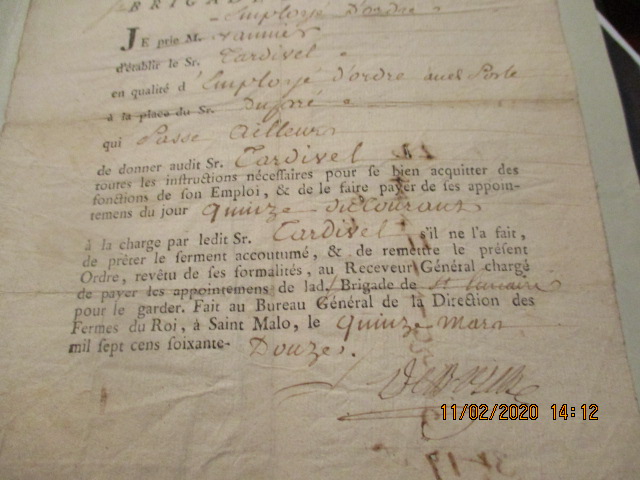 BRIGADE
Employé D'ordre
JE prie M. Vannier
d'établir le Sr. Tardivel
en qualité d'Employé d'ordre audt Poste
à la place du Sr. Dupré
qui Passe Ailleurs
de donner audit Sr. Tardivel
toutes les instructions nécessaires pour se bien acquitter des
fonctions de son Emploi, & de le faire payer de ses appoin-
temens du jour Quinze du Courant
à la charge par ledit Sr. Tardivel s'il ne l'a fait,
de prêter le serment accoutumé, & de remettre le présent
Ordre, revêtu de ses formalités, au Receveur Général chargé
de payer les appointemens de lad. Brigade de St
pour le garder. Fait au Bureau Général de la Direction des
Fermes du Roi, à Saint Malo, le Quinze Mars
mil sept cens soixante-Douze.
11/02/2020 14:12